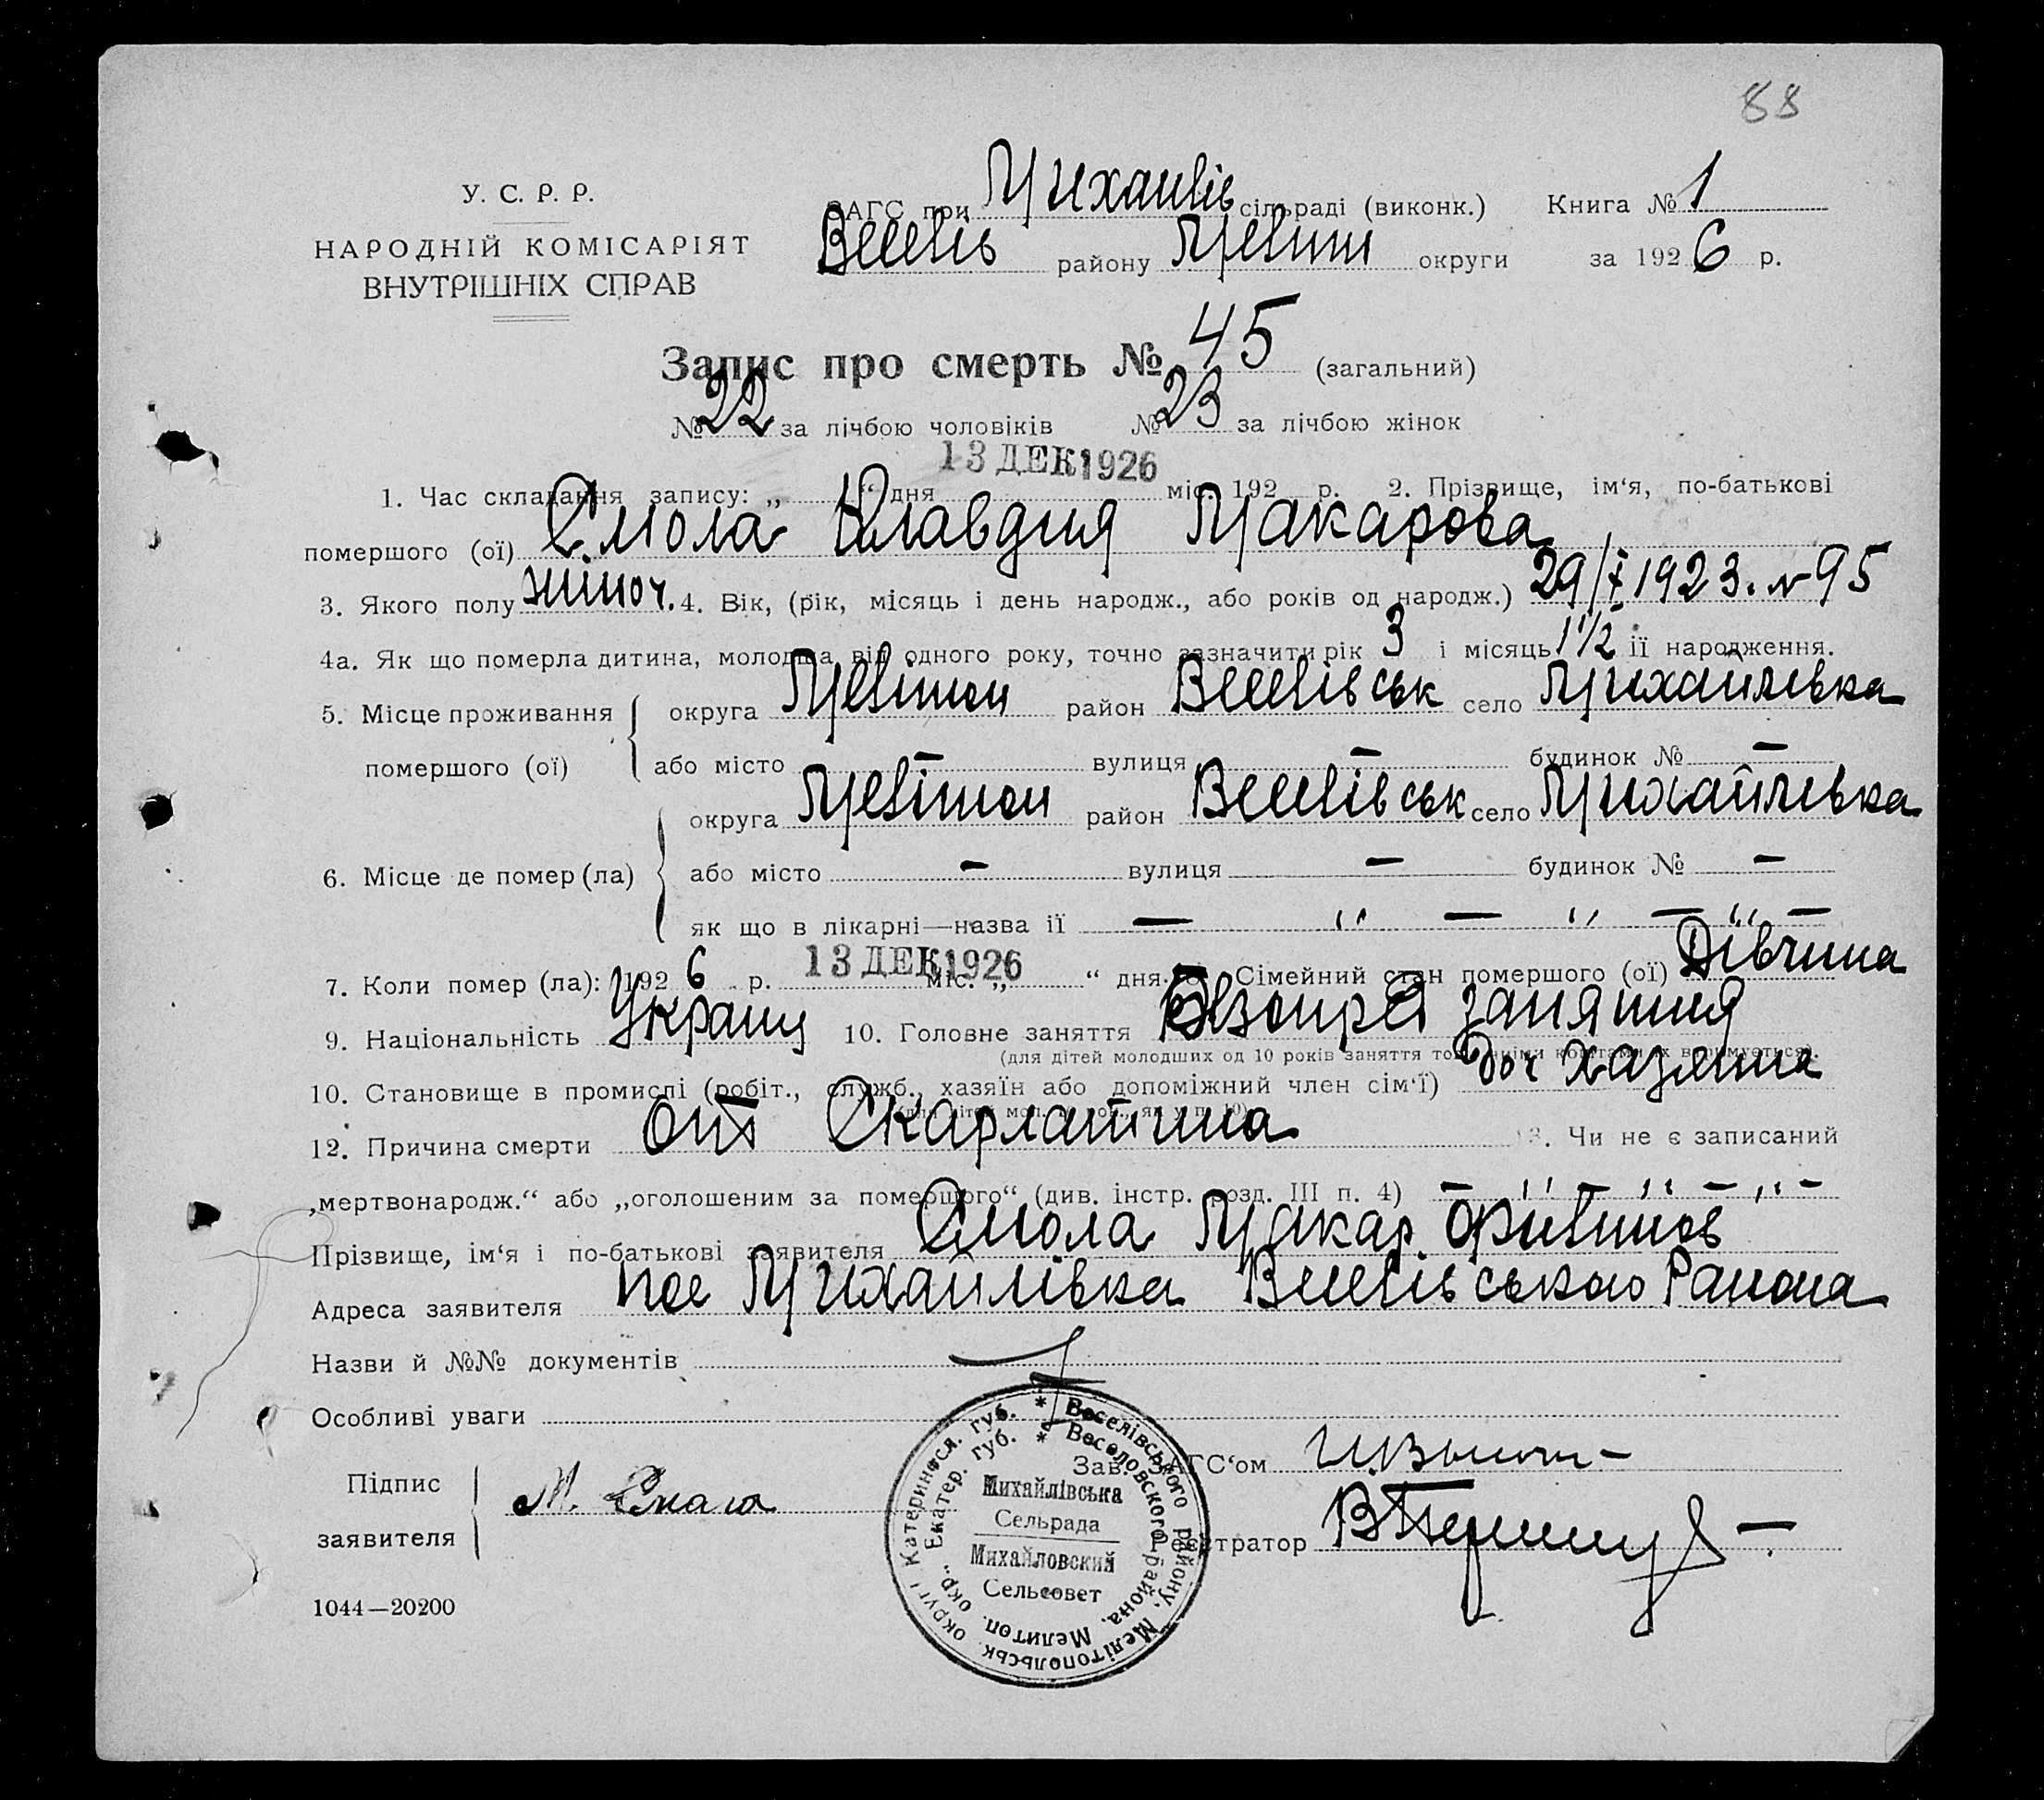 88
У. С. Р. Р.
НАРОДНІЙ КОМІСАРІЯТ
ВНУТРІШНІХ СПРАВ
ЗАГС при Михайлів сільраді (виконк.) Книга № 1
Веселів району Меліт округи за 1926 р.
Запис про смерть № 45 (загальний)
№ 22 за лічбою чоловіків № 23 за лічбою жінок
13 ДЕК 1926
1. Час складання запису: „ “ дня міс. 192 р. 2. Прізвище, ім‘я, по-батькові
помершого (ої) Смола Клавдия Макарова
3. Якого полу жіноч. 4. Вік, (рік, місяць і день народж., або років од народж.) 29/X 1923. № 95
4а. Як що померла дитина, молодша від одного року, точно зазначити рік 3 і місяць 1 1/2 її народження.
5. Місце проживання округа Мелітоп район Веселівськ село Михайлівка
помершого (ої) або місто — вулиця — будинок № —
округа Мелітоп район Веселівськ село Михайлівка
6. Місце де помер (ла) або місто — вулиця — будинок № —
як що в лікарні—назва її — " — " — " —
7. Коли помер (ла): 1926 р. 13 ДЕК 1926 міс. „ “ дня. Сімейний стан помершого (ої) Дівчина
9. Національність Україн 10. Головне заняття заняття
(для дітей молодших од 10 років заняття того, чиїми коштами їх в тримується).
10. Становище в промислі (робіт., служб., хазяїн або допоміжний член сім‘ї) доч хазяіна
12. Причина смерти От Скарлатина 13. Чи не є записаний
„мертвонародж.“ або „оголошеним за помершого“ (див. інстр. розд. III п. 4) — " — " — " —
Прізвище, ім‘я і по-батькові заявителя Смола Макар Филипов
Адреса заявителя пос Михайлівка Веселівського Района
Назви й №№ документів
Особливі уваги
Підпис
заявителя М. Смола
Зав. ЗАГС‘ом
Реєстратор
* Веселівського району, Мелітопольськ. округи Катериносл. губ.
* Веселовского района, Мелитоп. окр., Екатер. губ.
Михайлівська
Сельрада
Михайловский
Сельсовет
1044—20200